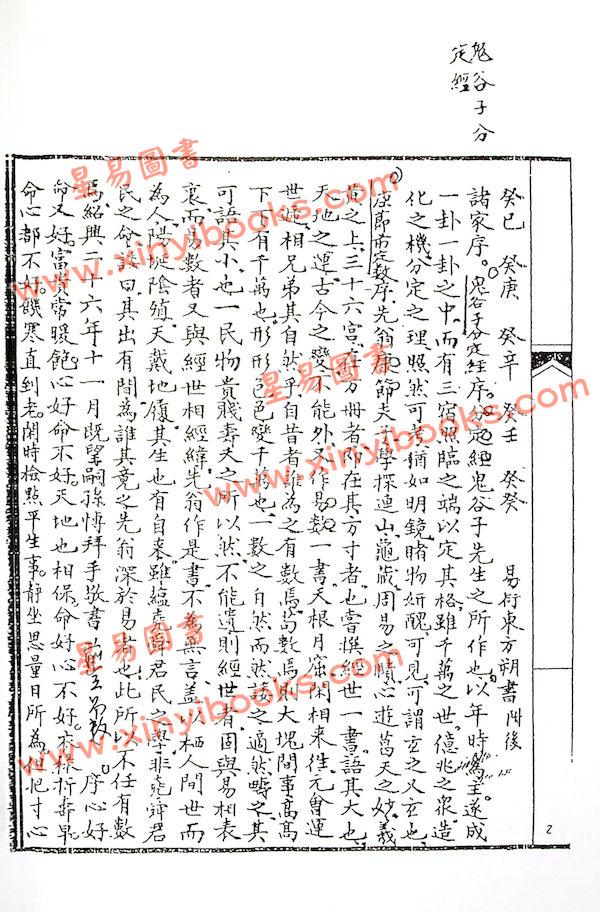 鬼谷子分
定經
癸巳 癸庚 癸辛 癸壬 癸癸 易衍東方朔書 門後
諸家序。鬼谷子分定經序。分定經鬼谷子先生之所作也以年時為主遂成
一卦一卦之中而有三宿照臨之端以定其格雖千萬之世億兆之衆造
化之機分定之理照然可考猶如明鏡睹物妍醜可見可謂玄之又玄也
康節前定數序先翁康節夫子學探連山龜藏周易之賾心遊葛天之妙羲
黄之上三十六宮在方冊者即在其方寸者也嘗撰經世一書語其大也
天地之運古今之變不能外又作易數一書天根月窟閑相來徃元會運
世遞相兄弟其自然乎自昔者誰為之有數焉苟數焉則大塊間事高高
下下有千萬也形形色色變千萬也一數之自然而然接之適然疇之其
可語其小也一民物貴賤壽夭之所以然不能遺則經世者固與易相表
裏而易數者又與經世相經緯先翁作是書不為無言盖以栖人間世而
為人陽陡陰殰天戴地履其生也有自來雖蘊堯舜君民之學非堯舜君
民之命設曰其出有間為誰其竟之先翁深於易者也此所以不任有數
焉紹興二十六年十一月既望嗣孫博拜手敬書 序心好
命又好。富貴常暖飽。心好命不好。天地也相保。命好心不好。夭禄折壽早。
命心都不好。饑寒直到老。閑時檢點平生事。靜坐思量日所為但把寸心
2
星易圖書
www.xinyibooks.com
星易圖書
www.xinyibooks.com
星易圖書
www.xinyibooks.com